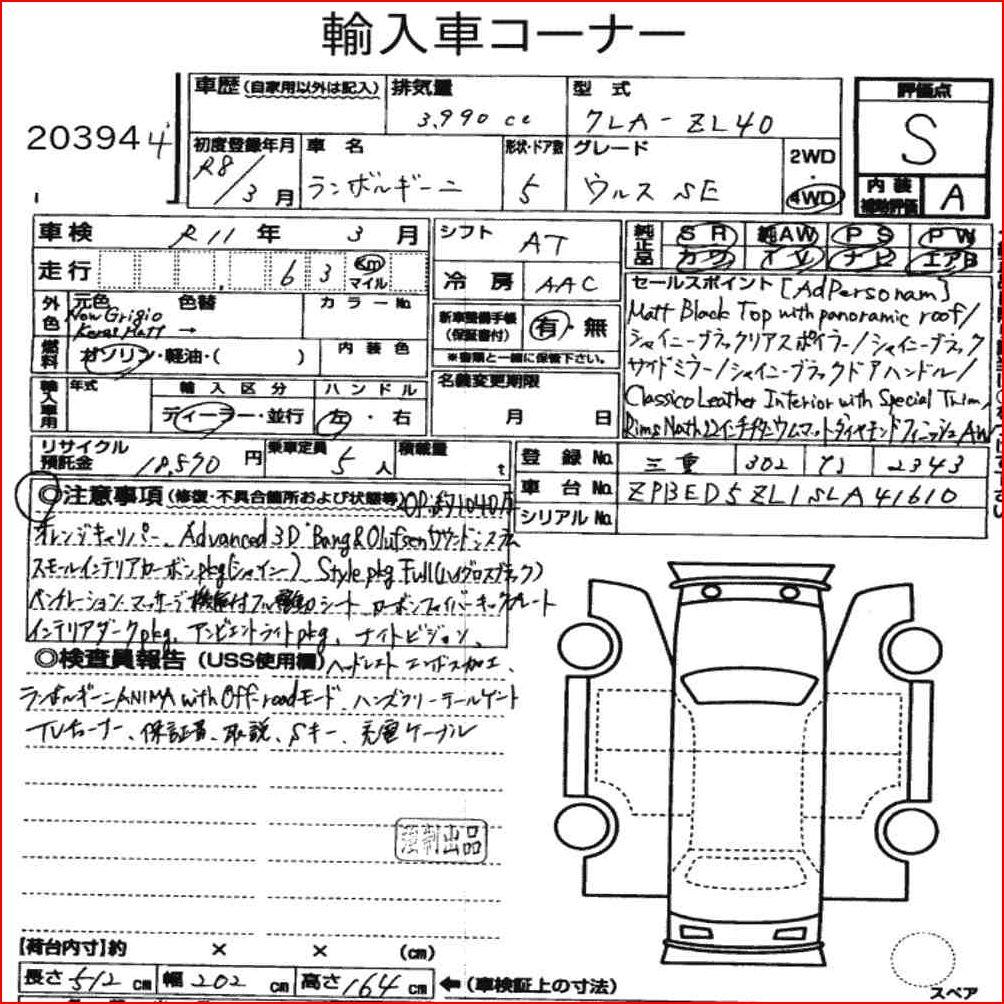 輸入車コーナー
車歴(自家用以外は記入) 排気量 型式 評価点
3,990 cc 7LA-ZL40 S
203944
初度登録年月 車名 形状・ドア数 グレード 2WD
R8/3月 ランボルギーニ 5 ウルス SE ・4WD
内装補助評価 A
車検 R11年 3月 シフト AT 純正品 SR 純AW PS PW
走行 63 km マイル 冷房 AAC カワ ナビ エアB
セールスポイント [AdPersonam]
外色 元色 色替 カラーNo. 新車整備手帳(保証書付) 有・無
Matt Black Top with panoramic roof/
New Grigio
Keres Matt →
シャイニーブラックリアスポイラー/シャイニーブラック
燃料 ガソリン・軽油・( ) 内装色 ※書類と一緒に保管下さい。
サイドミラー/シャイニーブラックドアハンドル/
輸入車用 年式 輸入区分 ハンドル 名義変更期限
Classico Leather Interior with Special Trim,
ディーラー・並行 左・右 月 日
Rims Nath 22インチチタニウムマットダイヤモンドフィニッシュAW
リサイクル預託金 18,590円 乗車定員 5人 積載量 t
登録No. 三重 302 2343
車台No. ZPBED5ZL1SLA41610
シリアルNo.
◎注意事項(修復・不具合箇所および状態等)
オレンジキャリパー、Advanced 3D Bang&Olufsenサウンドシステム
スモールインテリアカーボンpkg(シャイニー) Style pkg Full(ハイグロスブラック)
ベンチレーション マッサージ機能付フル電動シート カーボンファイバーキックプレート
インテリアダークpkg、アンビエントライトpkg、ナイトビジョン、
◎検査員報告(USS使用欄) ヘッドレストエンボス加工、
ランボルギーニANIMA with Off-roadモード、ハンズフリーテールゲート
TVチューナー、保証書、取説、Sキー、充電ケーブル
強制出品
【荷台内寸】約 × × (cm)
長さ 512 cm 幅 202 cm 高さ 164 cm ←(車検証上の寸法)
スペア